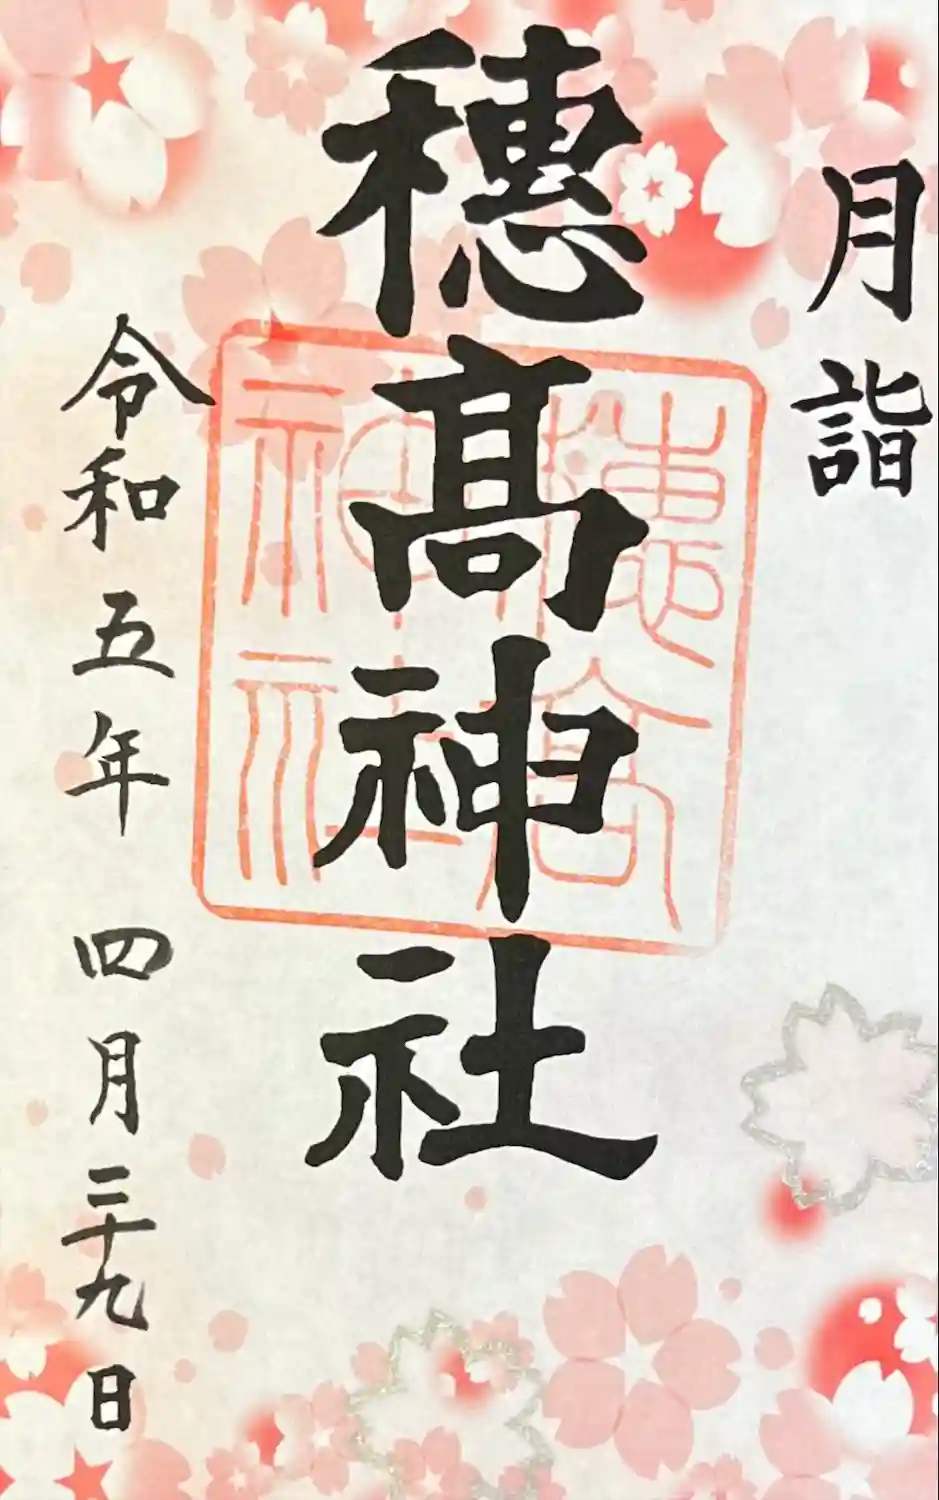 月詣
穂髙神社
穂高神社
令和五年 四月二十九日